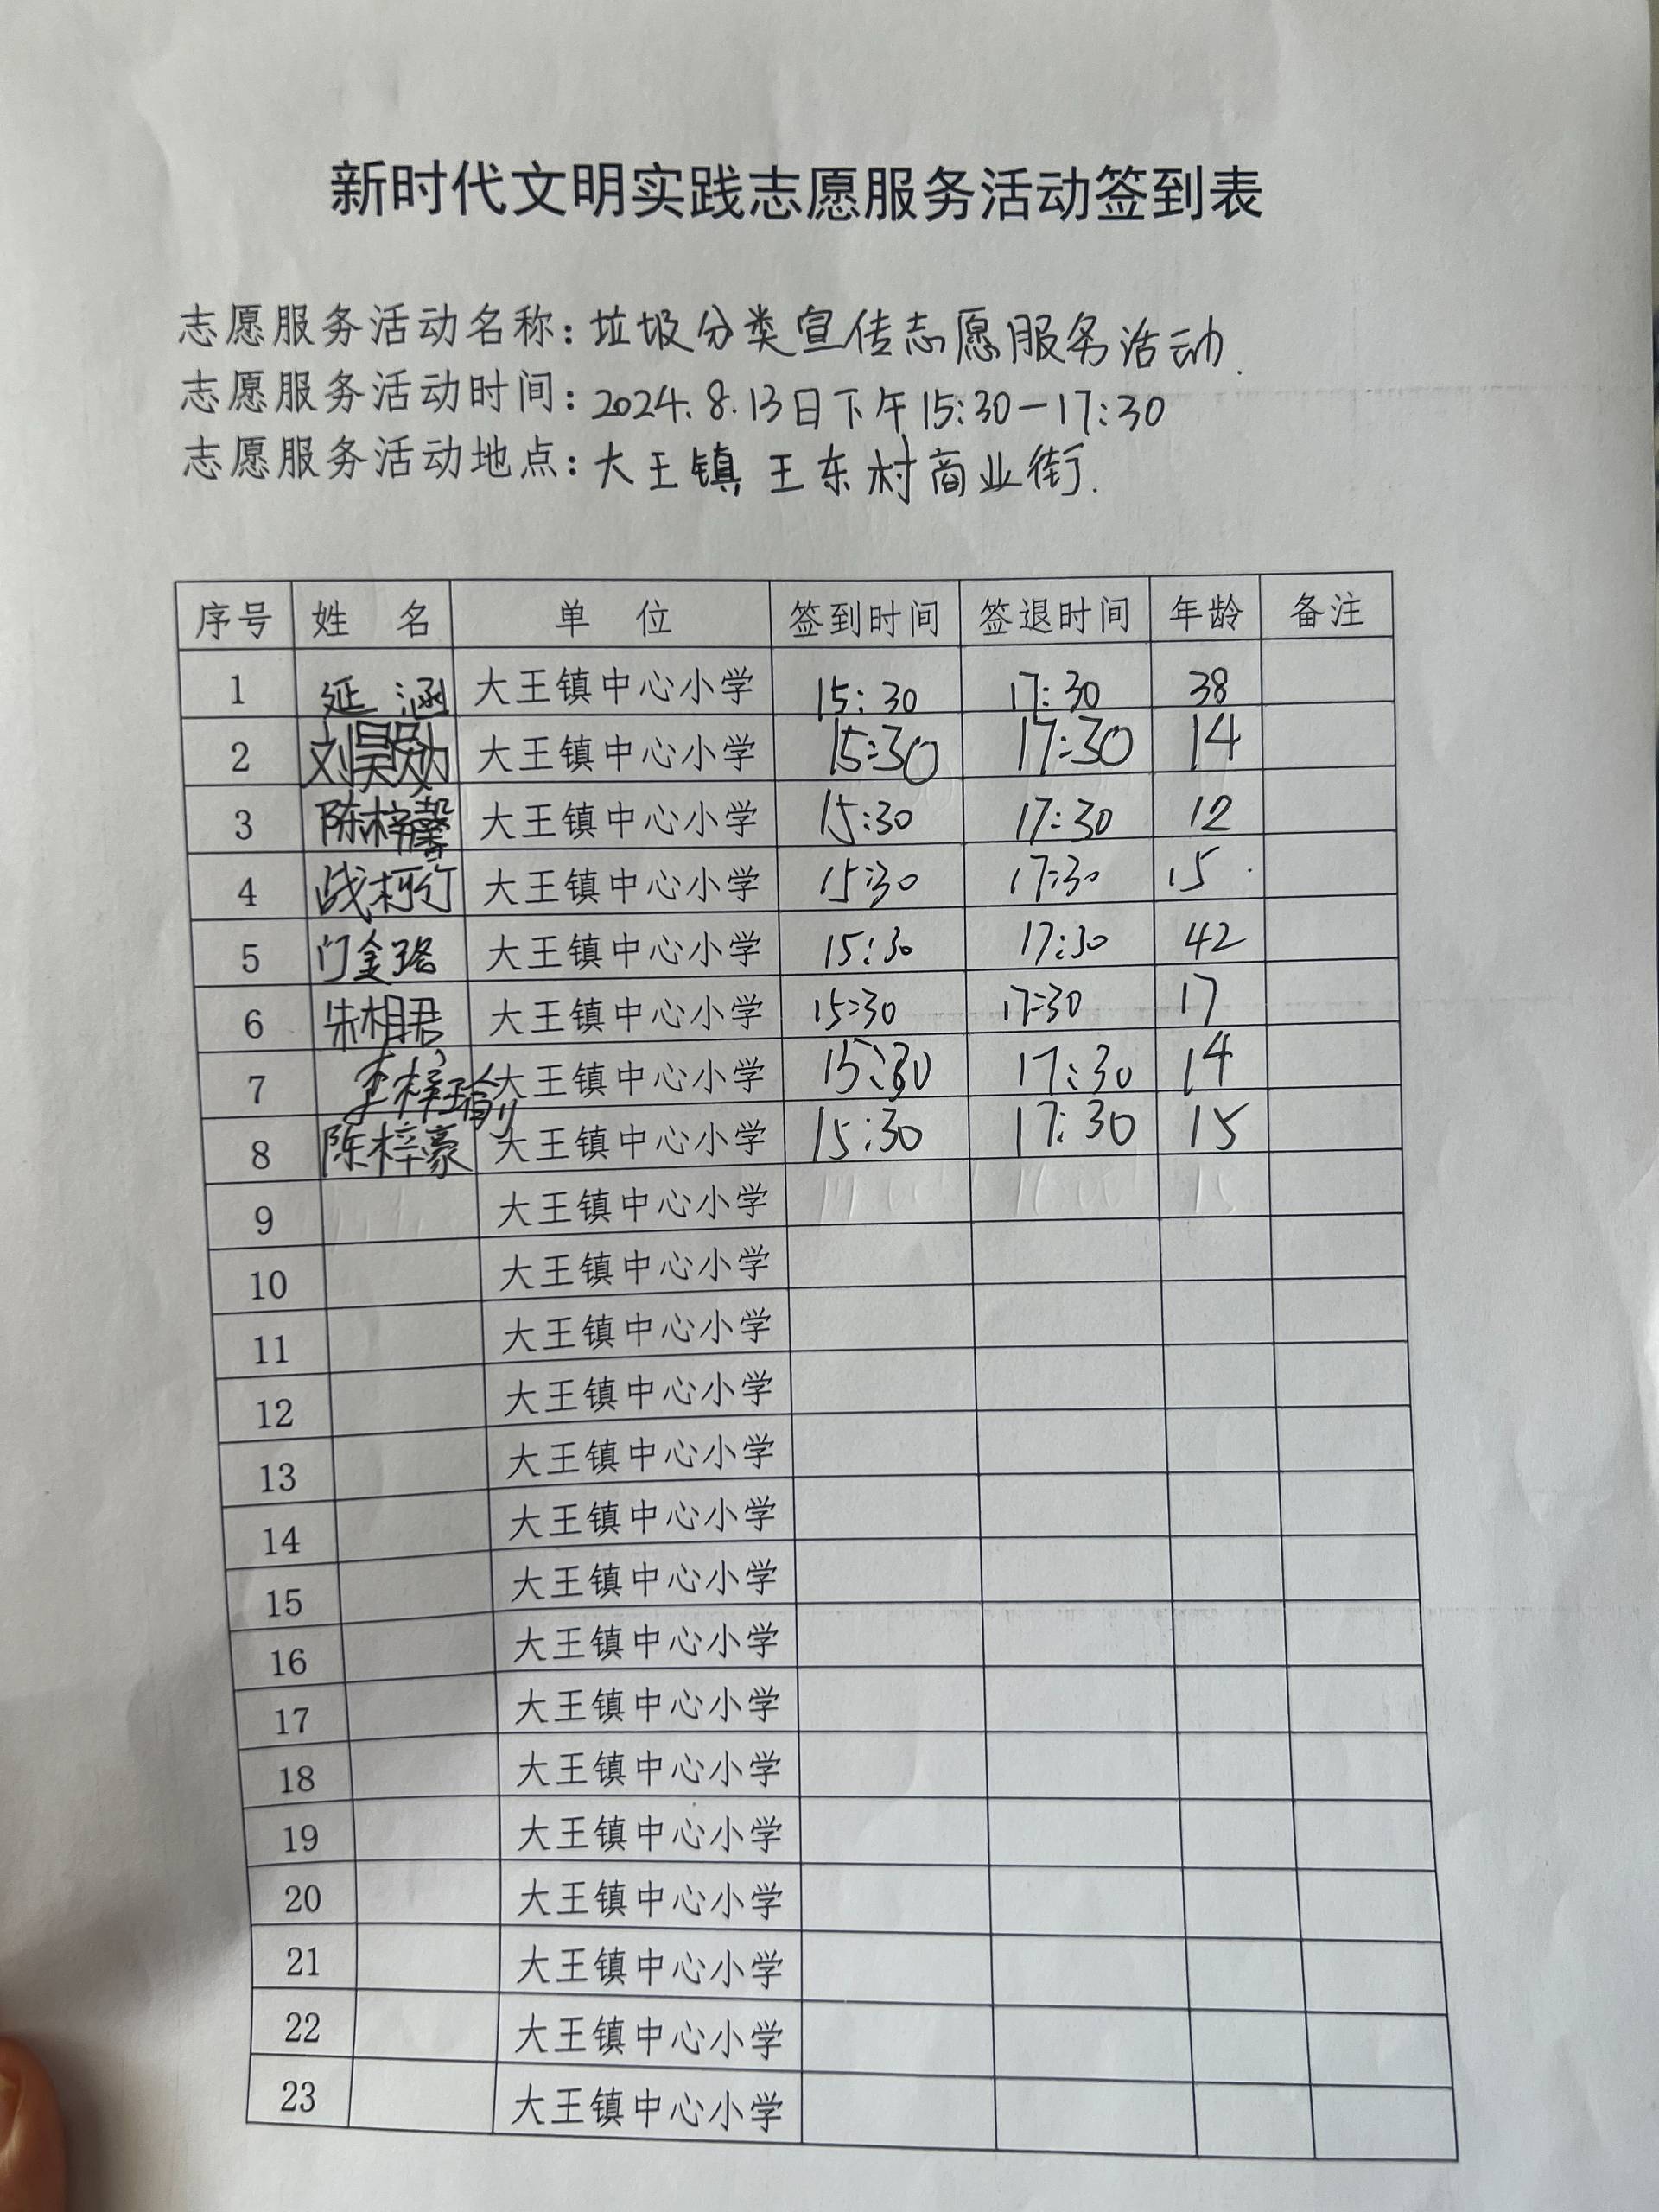 新时代文明实践志愿服务活动签到表
志愿服务活动名称：垃圾分类宣传志愿服务活动.
志愿服务活动时间：2024.8.13日下午15:30-17:30
志愿服务活动地点：大王镇王东村商业街.
序号 姓 名 单 位 签到时间 签退时间 年龄 备注
1 延 涵 大王镇中心小学 15:30 17:30 38
2 刘昊勋 大王镇中心小学 15:30 17:30 14
3 陈梓馨 大王镇中心小学 15:30 17:30 12
4 战柯行 大王镇中心小学 15:30 17:30 15
5 门金璐 大王镇中心小学 15:30 17:30 42
6 朱相君 大王镇中心小学 15:30 17:30 17
7 李梓瑜 大王镇中心小学 15:30 17:30 14
8 陈梓豪 大王镇中心小学 15:30 17:30 15
9 大王镇中心小学
10 大王镇中心小学
11 大王镇中心小学
12 大王镇中心小学
13 大王镇中心小学
14 大王镇中心小学
15 大王镇中心小学
16 大王镇中心小学
17 大王镇中心小学
18 大王镇中心小学
19 大王镇中心小学
20 大王镇中心小学
21 大王镇中心小学
22 大王镇中心小学
23 大王镇中心小学